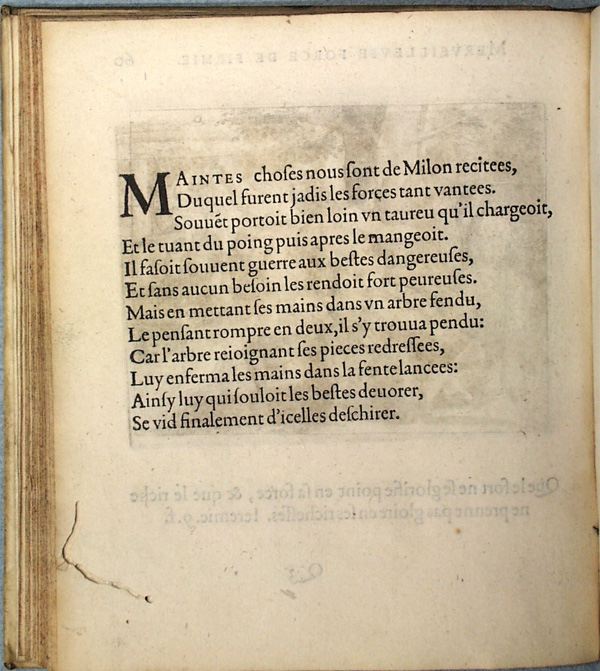 MAINTES choſes nous ſont de Milon recitees,
Duquel furent jadis les forçes tant vantees.
Souuẽt portoit bien loin vn taureu qu'il chargeoit,
Et le tuant du poing puis apres le mangeoit.
Il faſoit ſouuent guerre aux beſtes dangereuſes,
Et ſans aucun beſoin les rendoit fort peureuſes.
Mais en mettant ſes mains dans vn arbre fendu,
Le penſant rompre en deux, il s'y trouua pendu:
Car l'arbre reioignant ſes pieces redreſſees,
Luy enferma les mains dans la fente lancees:
Ainſy luy qui ſouloit les beſtes deuorer,
Se vid finalement d'icelles deſchirer.